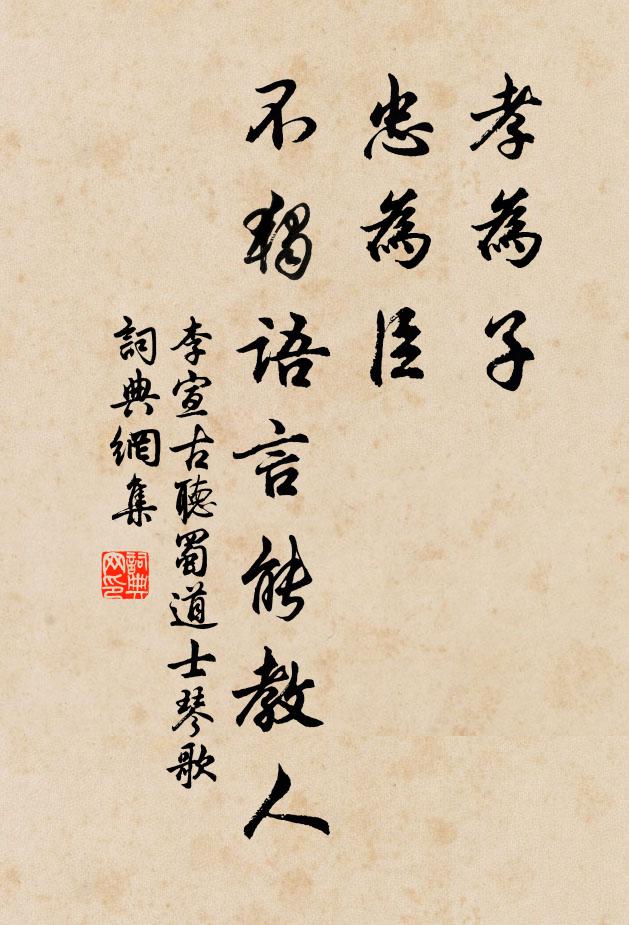 孝為子
忠為臣
不獨語言能教人
李宣古聽蜀道士琴歌
詞典網集
詞典网印